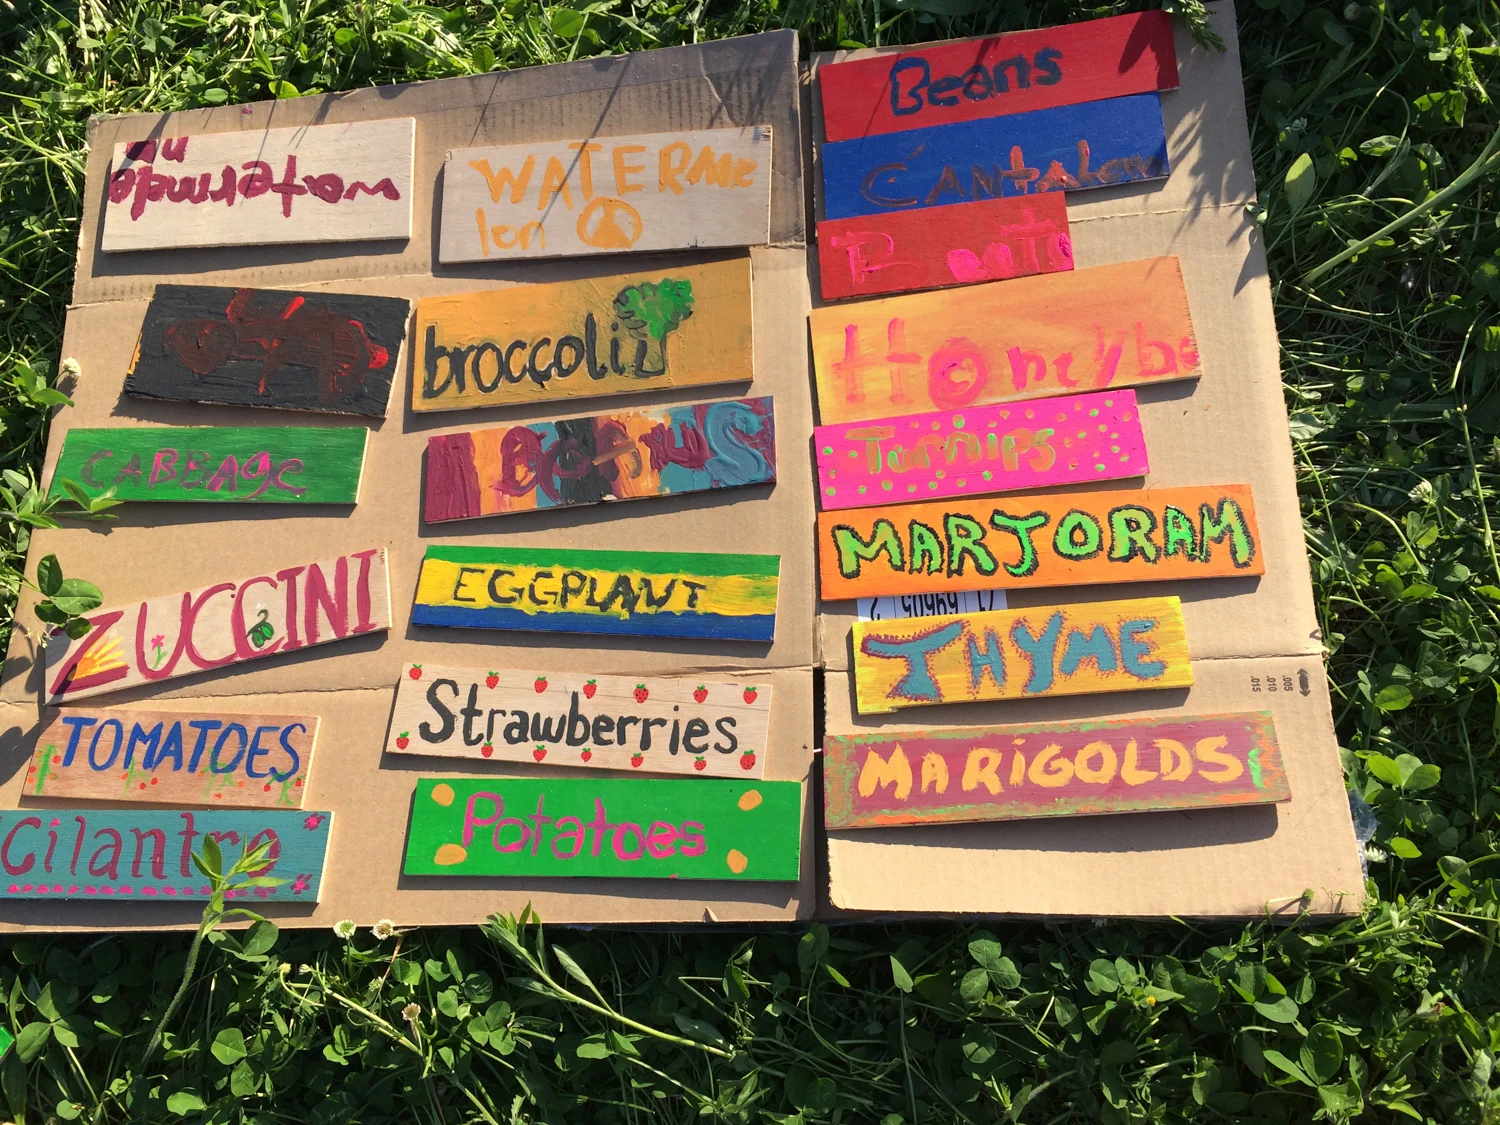 watermelon
WATERMe
lon
broccoli
CABBAge
ZUCCINI
EGGPLANT
TOMATOES
Strawberries
Cilantro
Potatoes
Beans
Beets
Honeybe
Turnips
MARJORAM
THYME
MARiGOLDS
.005
.010
.015